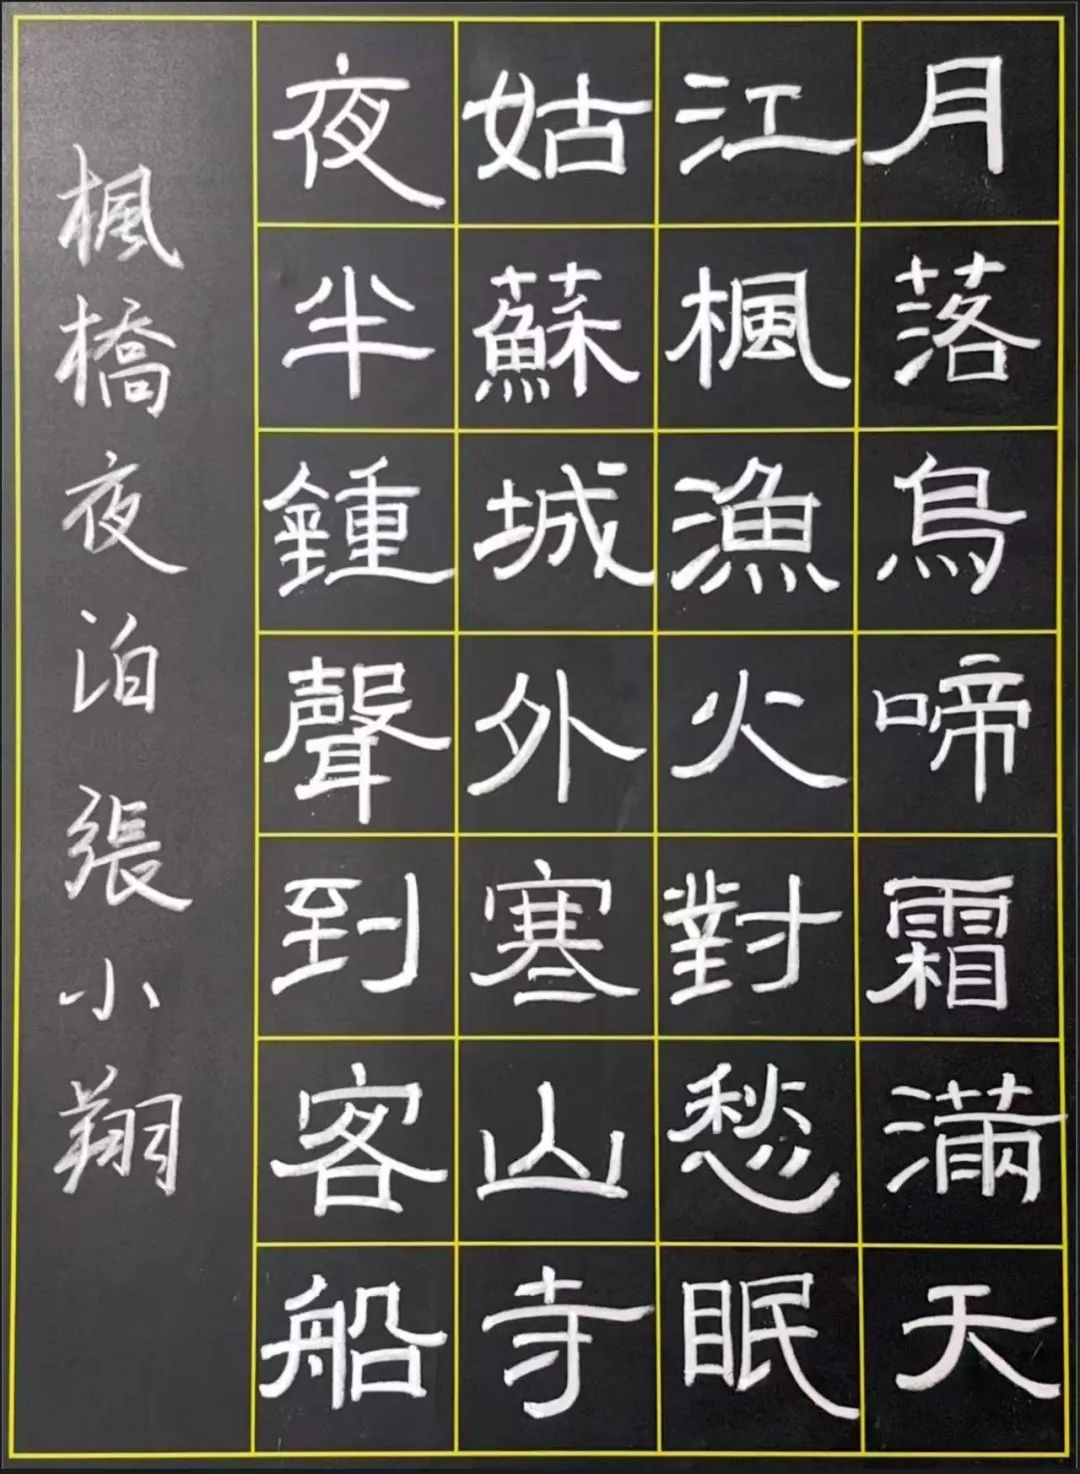 月落烏啼霜滿天
江楓漁火對愁眠
姑蘇城外寒山寺
夜半鍾聲到客船
楓橋夜泊張小翔